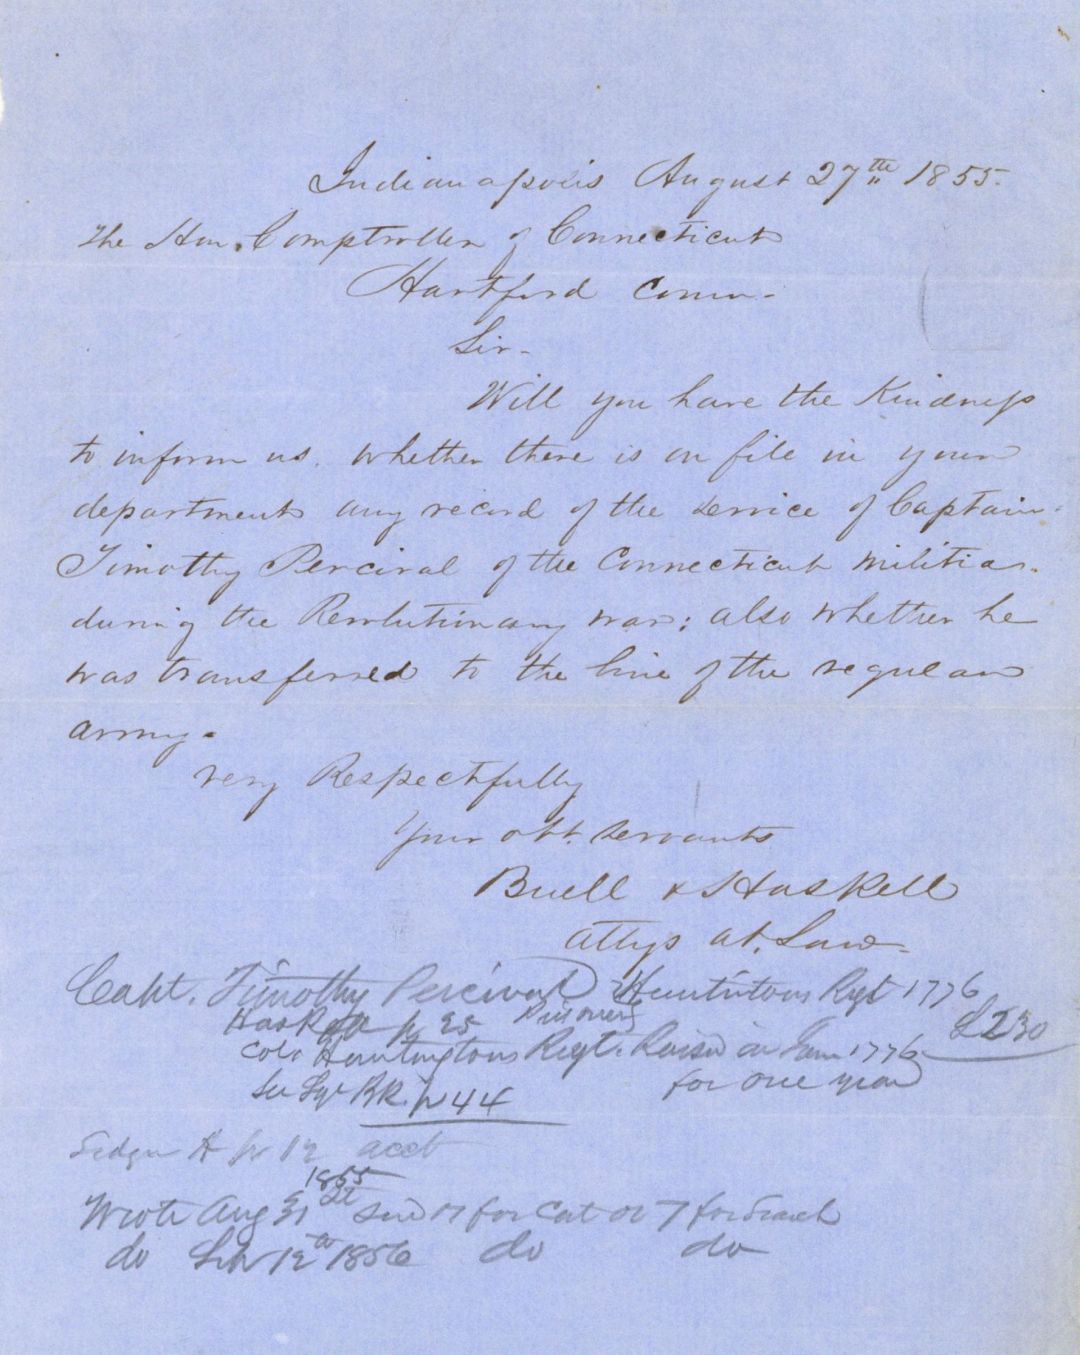 Indianapolis August 27th 1855.
The Hon. Comptroller of Connecticut
Hartford Conn -
Sir -
Will you have the Kindness
to inform us, whether there is on file in your
department any record of the service of Captain
Timothy Percival of the Connecticut Militia.
during the Revolutionary war; also whether he
was transferred to the line of the regular
army.
very Respectfully
Your obt. servants
Buell & Haskell
Attys at. Law -
Capt. Timothy Percival Huntintons Regt 1776
Haskell p 25 Prisoners £230
Colo Huntingtons Regt. Raised in 1776
for one year
See RR. p 44
Ledger A p 12 acct
1855
Wrote Aug 31st for Cat or 7 for
do 12th 1856 do do